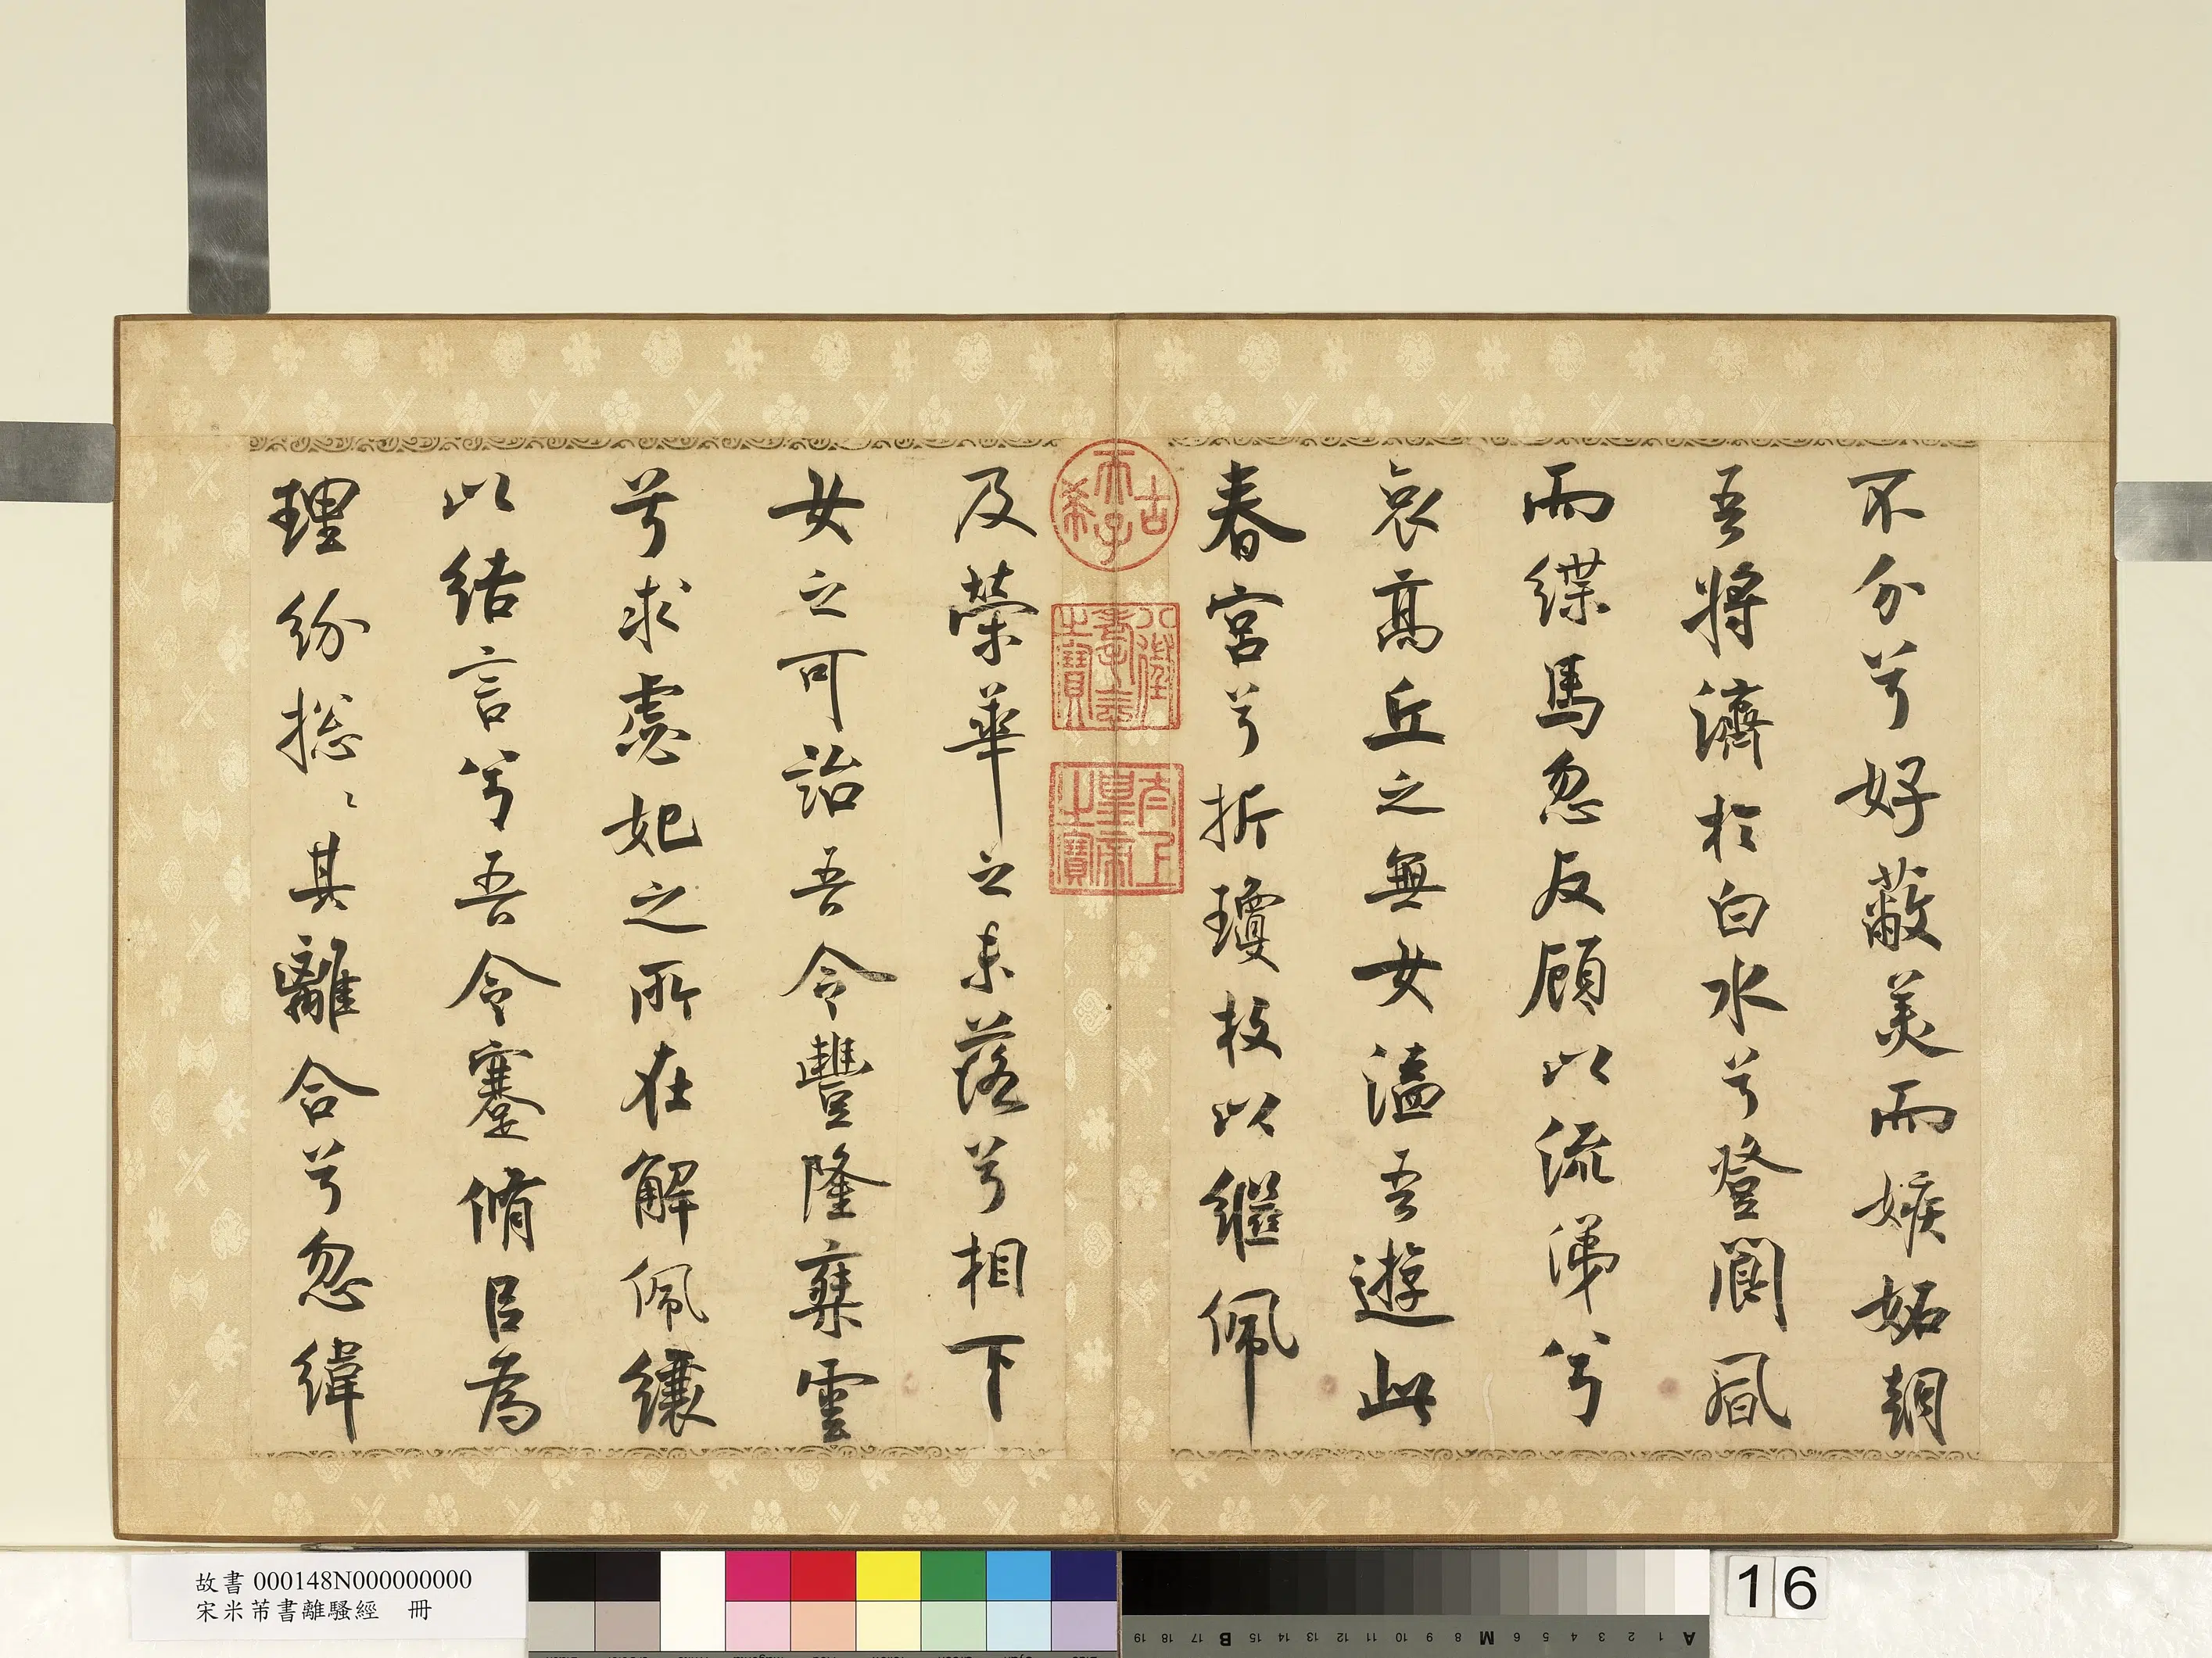 不分兮好蔽美而嫉妬朝
吾將濟於白水兮登閬風
而緤馬忽反顧以流涕兮
哀高丘之無女溘吾遊此
春宮兮折瓊枝以繼佩
古希天子
八徵耄念之寶
太上皇帝之寶
及榮華之未落兮相下
女之可詒吾令豐隆椉雲
兮求虙妃之所在解佩纕
以結言兮吾令蹇脩㠯為
理紛揔〻其離合兮忽緯
故書 000148N000000000
宋米芾書離騷經 冊
A 1 2 3 4 5 6 M 8 9 10 11 12 13 14 15 B 17 18 19
16